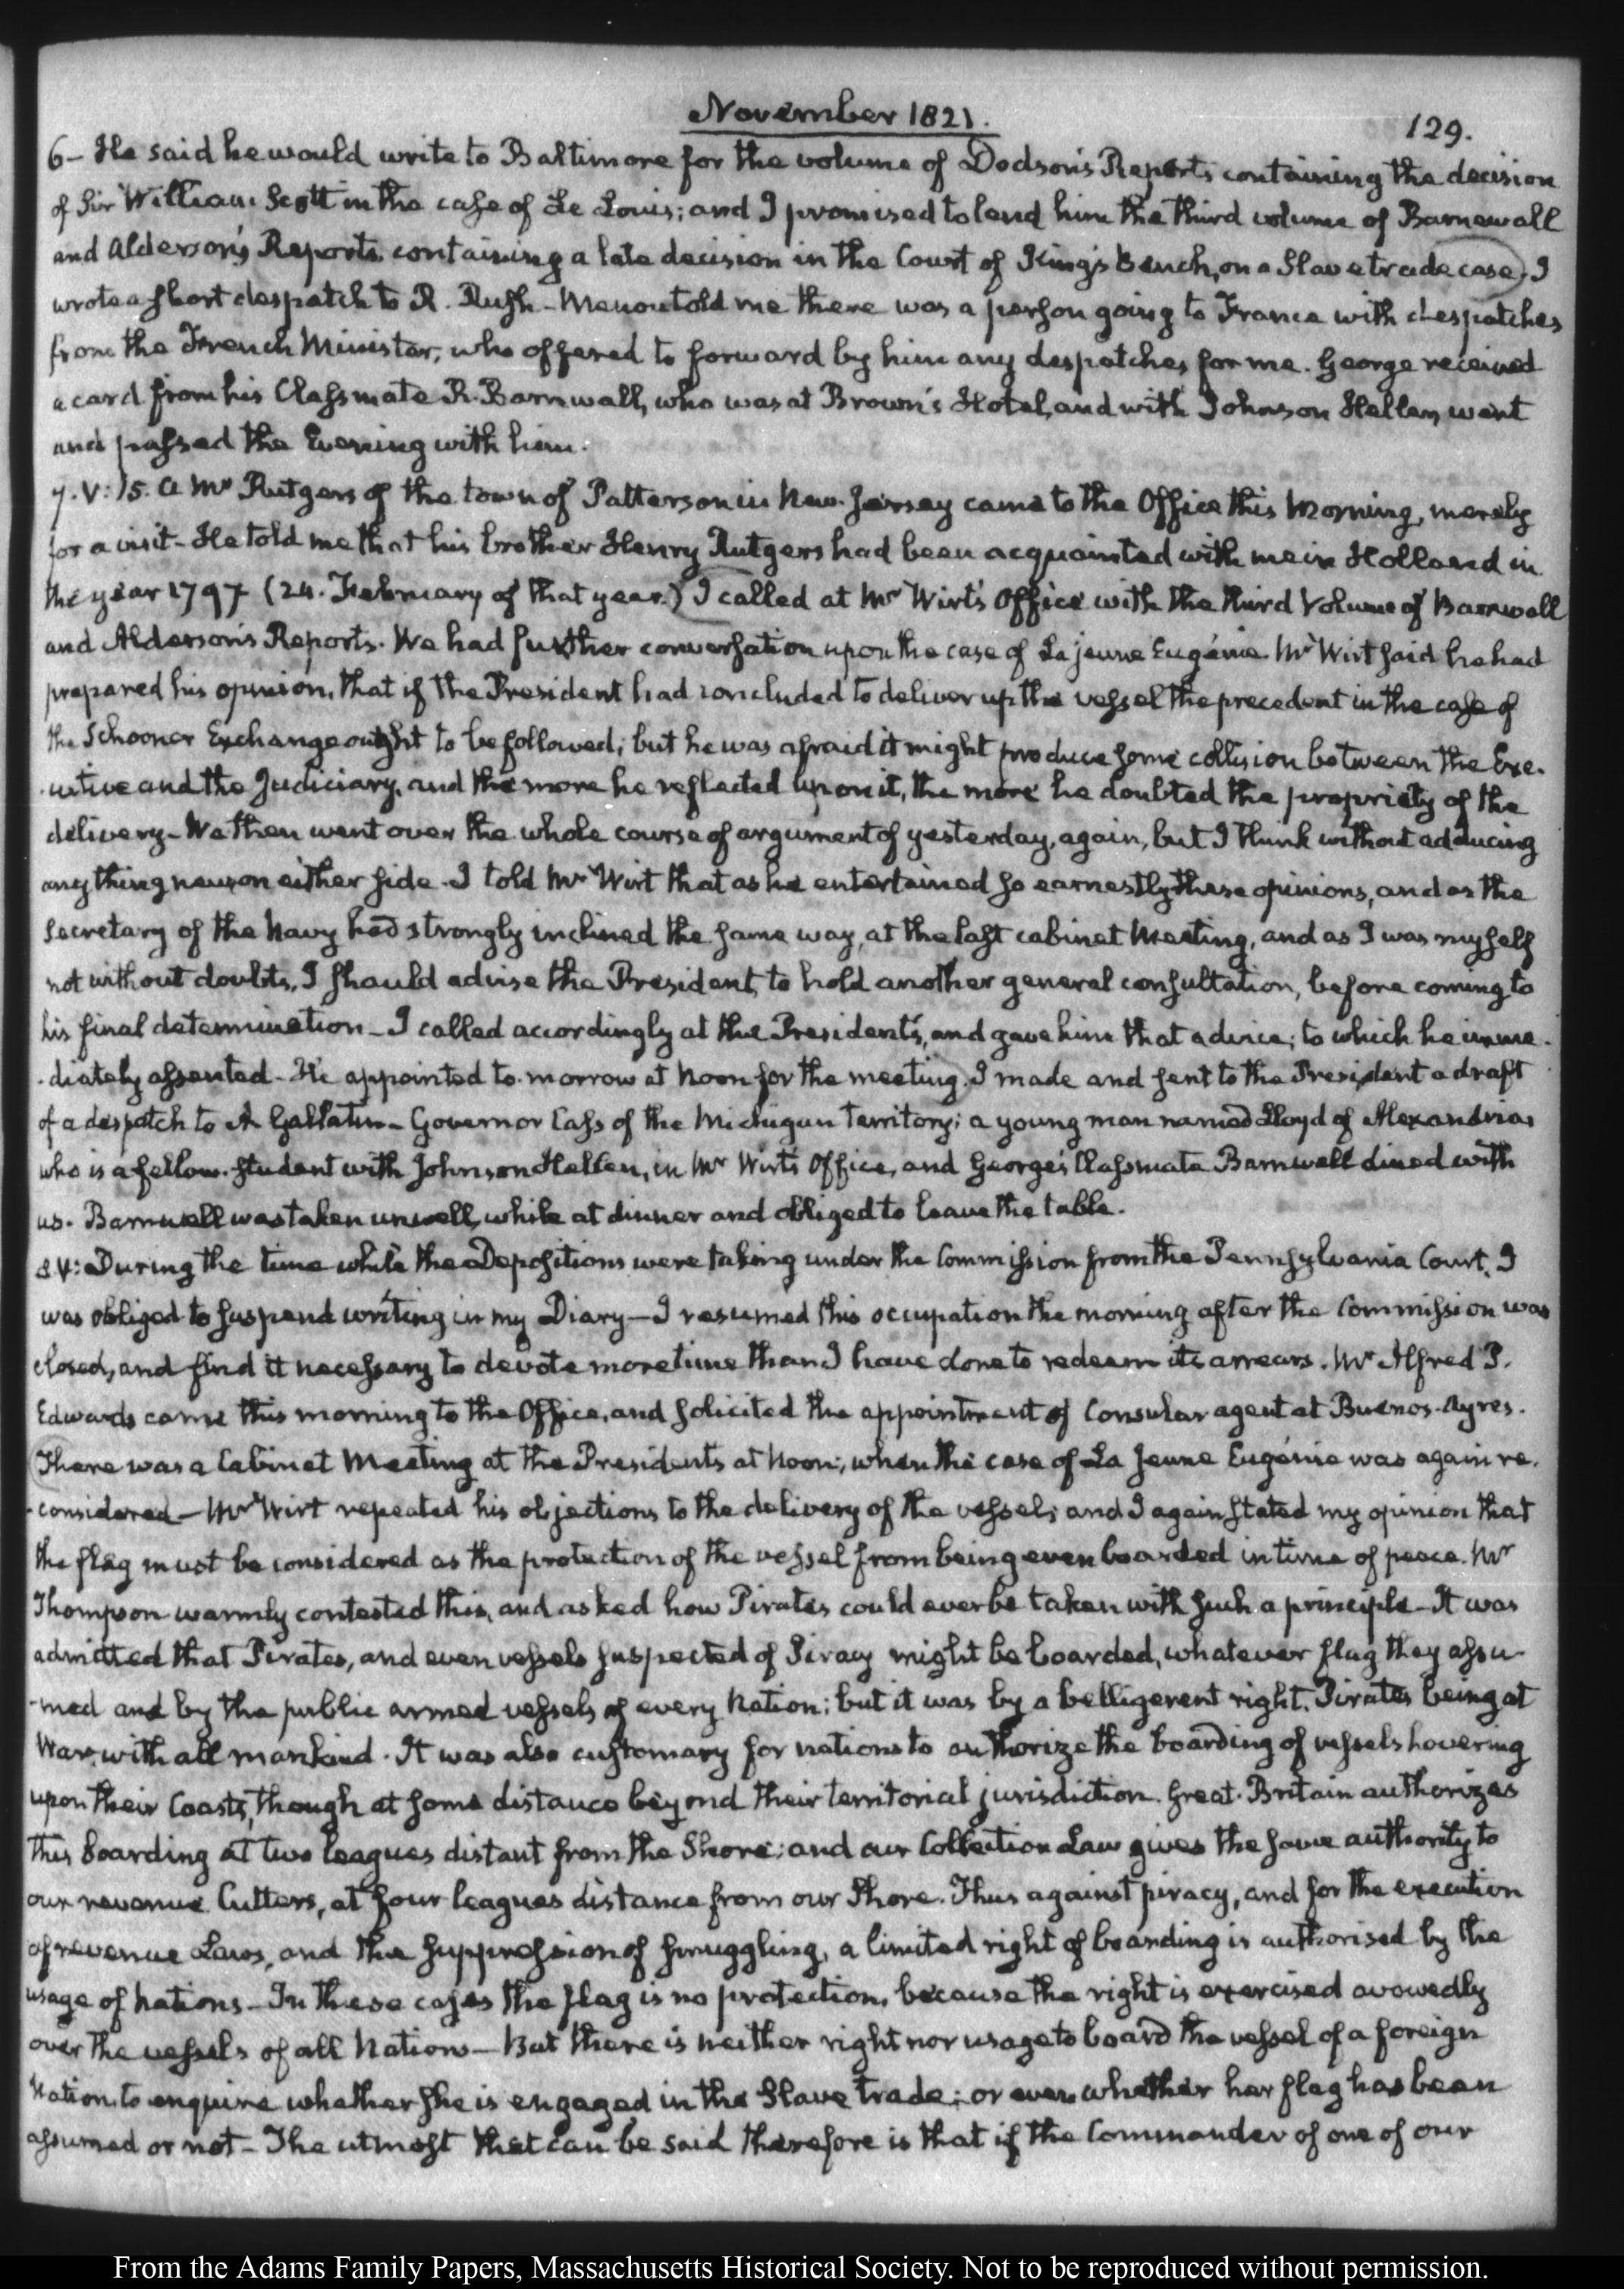 November 1821.
129.
6 – He said he would write to Baltimore for the volume of Dodson's Reports containing the decision
of Sir William Scott in the case of Le Louis; and I promised to lend him the third volume of Barnewall
and Alderson's Reports, containing a late decision in the Court of King's bench, on a Slave trade case) I
wrote a short despatch to R. Rush – Menou told me there was a person going to France with despatches
from the French Minister, who offered to forward by him any despatches for me. George received
a card from his Classmate R. Barnwall, who was at Brown's Hotel, and with Johnson Hellen, went
and passed the Evening with him.
7. V: 15. A Mr Rutgers of the town of Patterson in New-Jersey came to the Office this Morning, merely
for a visit – He told me that his brother Henry Rutgers had been acquainted with me in Holland in
the year 1797 (24. February of that year.) I called at Mr Wirt's Office with the third Volume of Barnwall
and Alderson's Reports. We had further conversation upon the case of La jeune Eugénie. Mr Wirt said he had
prepared his opinion, that if the President had concluded to deliver up the vessel the precedent in the case of
the Schooner Exchange ought to be followed; but he was afraid it might produce some collision between the Exe-
-cutive and the Judiciary, and the more he reflected upon it, the more he doubted the propriety of the
delivery – We then went over the whole course of argument of yesterday, again, but I think without adducing
any thing new on either side. I told Mr Wirt that as he entertained so earnestly these opinions, and as the
Secretary of the Navy had strongly inclined the same way, at the last cabinet Meeting, and as I was myself
not without doubts, I should advise the President, to hold another general consultation, before coming to
his final determination – I called accordingly at the President's, and gave him that advice; to which he imme-
-diately assented – He appointed to-morrow at Noon for the meeting. I made and sent to the President a draft
of a despatch to A Gallatin – Governor Cass of the Michigan territory; a young man named Lloyd of Alexandria,
who is a fellow-student with Johnson Hellen, in Mr Wirt's Office, and George's Classmate Barnwell dined with
us. Barnwell was taken unwell, while at dinner and obliged to leave the table.
8. V: During the time while the Depositions were taking under the Commission from the Pennsylvania Court, I
was obliged to suspend writing in my Diary – I resumed this occupation the morning after the Commission was
closed, and find it necessary to devote more time than I have done to redeem its arrears. Mr Alfred P.
Edwards came this morning to the Office, and solicited the appointment of Consular agent at Buenos-Ayres.
There was a Cabinet Meeting at the President's at Noon; when the case of La Jeune Eugénie was again re-
-considered – Mr Wirt repeated his objections to the delivery of the vessel; and I again stated my opinion that
the flag must be considered as the protection of the vessel from being even boarded in time of peace. Mr
Thompson warmly contested this, and asked how Pirates could ever be taken with such a principle – It was
admitted that Pirates, and even vessels suspected of Piracy might be boarded, whatever flag they assu-
-med and by the public armed vessels of every Nation; but it was by a belligerent right. Pirates being at
War with all mankind. It was also customary for nations to authorize the boarding of vessels hovering
upon their Coasts, though at some distance beyond their territorial jurisdiction. Great-Britain authorizes
this boarding at two leagues distant from the Shore; and our Collection Law gives the same authority to
our revenue Cutters, at four leagues distance from our Shore. Thus against piracy, and for the execution
of revenue Laws, and the suppression of smuggling, a limited right of boarding is authorised by the
usage of Nations – In these cases the flag is no protection, because the right is exercised avowedly
over the vessels of all Nations – But there is neither right nor usage to board the vessel of a foreign
Nation to enquire whether she is engaged in the Slave trade; or even whether her flag has been
assumed or not – The utmost that can be said therefore is that if the Commander of one of our
From the Adams Family Papers, Massachusetts Historical Society. Not to be reproduced without permission.